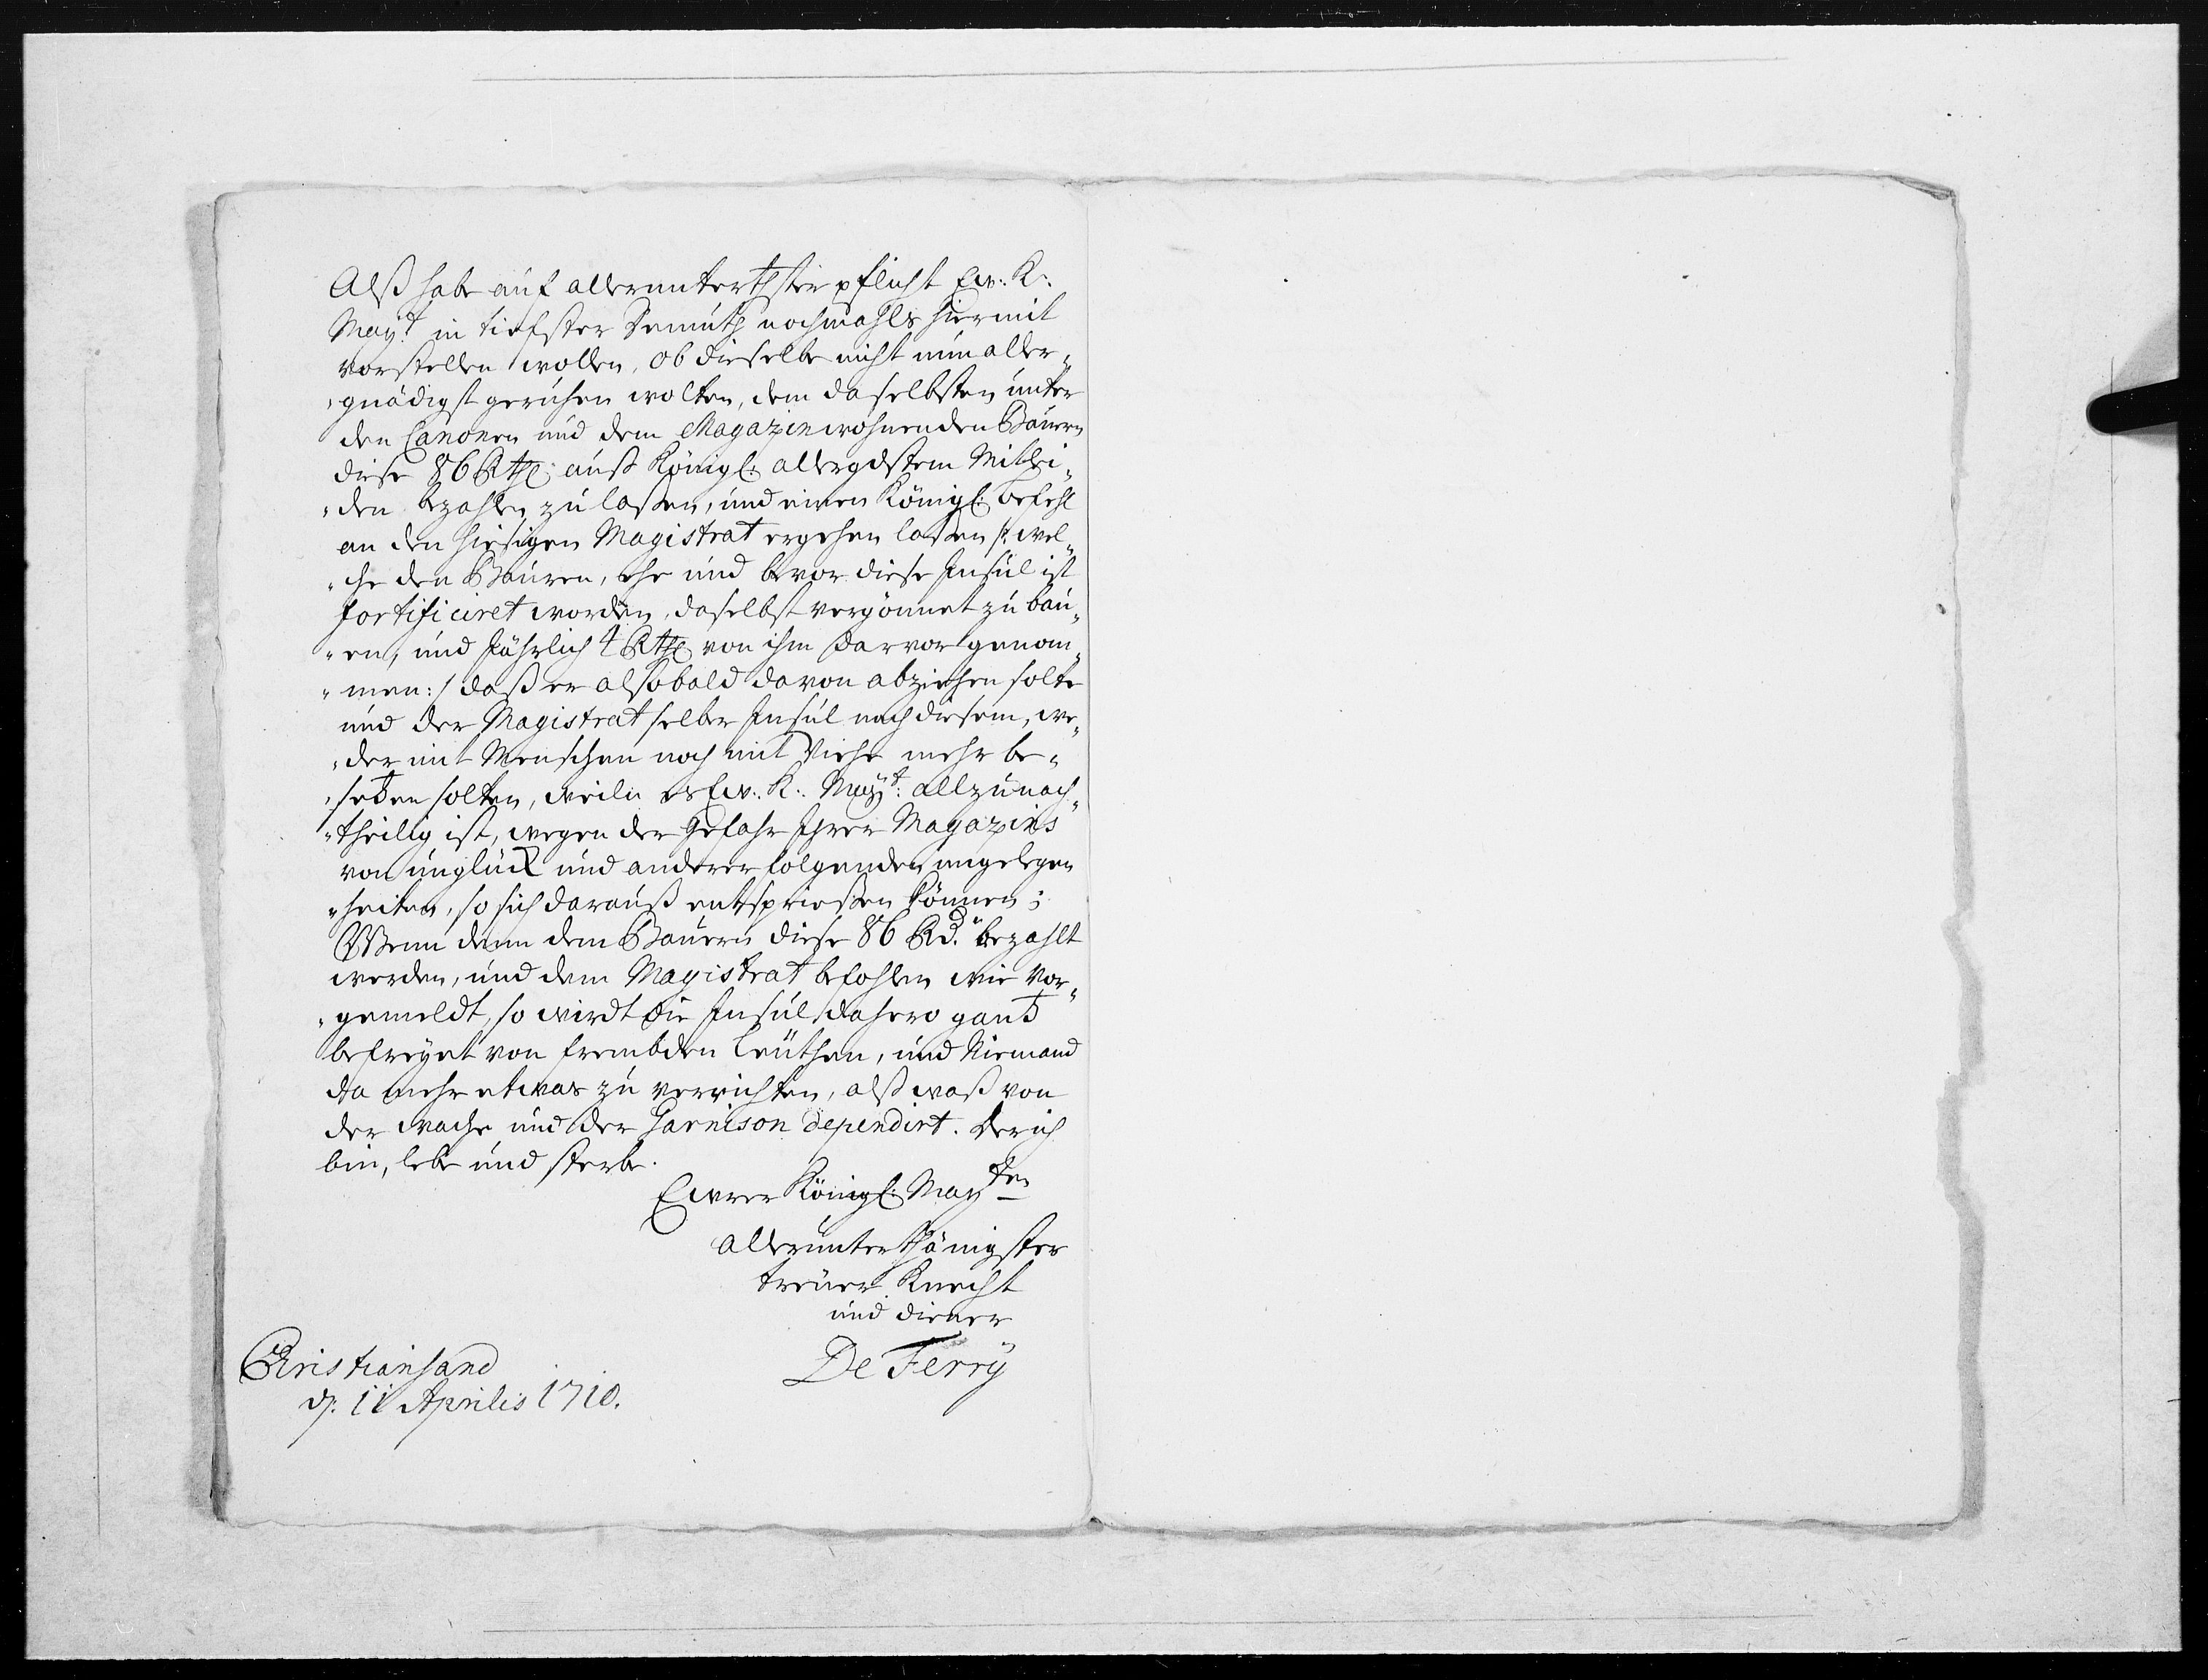 Alß habe auß allerunterthster pflicht Ew: K:
Mayt: in tiefster Demuth nochmahls hiermit
vorstellen wollen, ob dieselbe nicht nun aller„
„gnädigst geruhen wolten, dem daselbsten unter
den Canonen und dem Magazin wohnenden Bauern
diese 86 Rthl: auß Königl: allergdstem Mitlei„
„den bezahlen zu laßen, und einen Königl: befehl
an den hiesigen Magistrat ergehen laßen /: wel„
„che den Bauren, ehe und bevor diese Insul ist
fortificiret worden, daselbst vergönnet zu bau„
„en, und Jährlich 4 Rthl von ihm darvor genom„
„men :/ daß er alsobald davon abziehen solte
und der Magistrat selber Insul nach diesem, we„
„der mit Menschen noch mit Viehe mehr be„
„setzen solten, weiln es Ew: K: Mayt: allzunach„
„theilig ist, wegen der Gefahr Ihrer Magazins
von unglück und anderer folgenden ungelegen
„heiten, so sich darauß entsprießen können;
Wenn denn dem Bauern diese 86 Rd. bezahlt
werden, und dem Magistrat befohlen wie vor„
„gemeldt, so wirdt die Insul dahero gantz
befreyet von frembden leuthen, und Niemand
da mehr etwas zu verrichten, alß waß von
der wache und der Garnison dependirt. Der ich
bin, lebe und sterbe.
Ewrer Königl: Mayten
allerunterthänigster
treuer Knecht
und diener
De Ferrÿ
Christiansand
d. 11 Aprilis 1710.